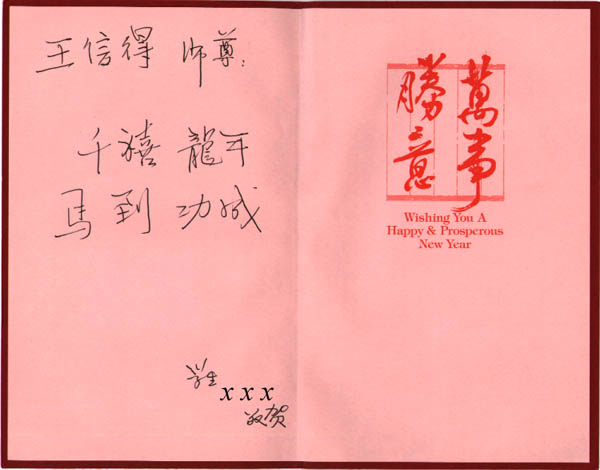 王信得 师尊:
千禧 龍年
馬到 功成
学生
x x x
敬贺
萬事
勝意
Wishing You A
Happy & Prosperous
New Year